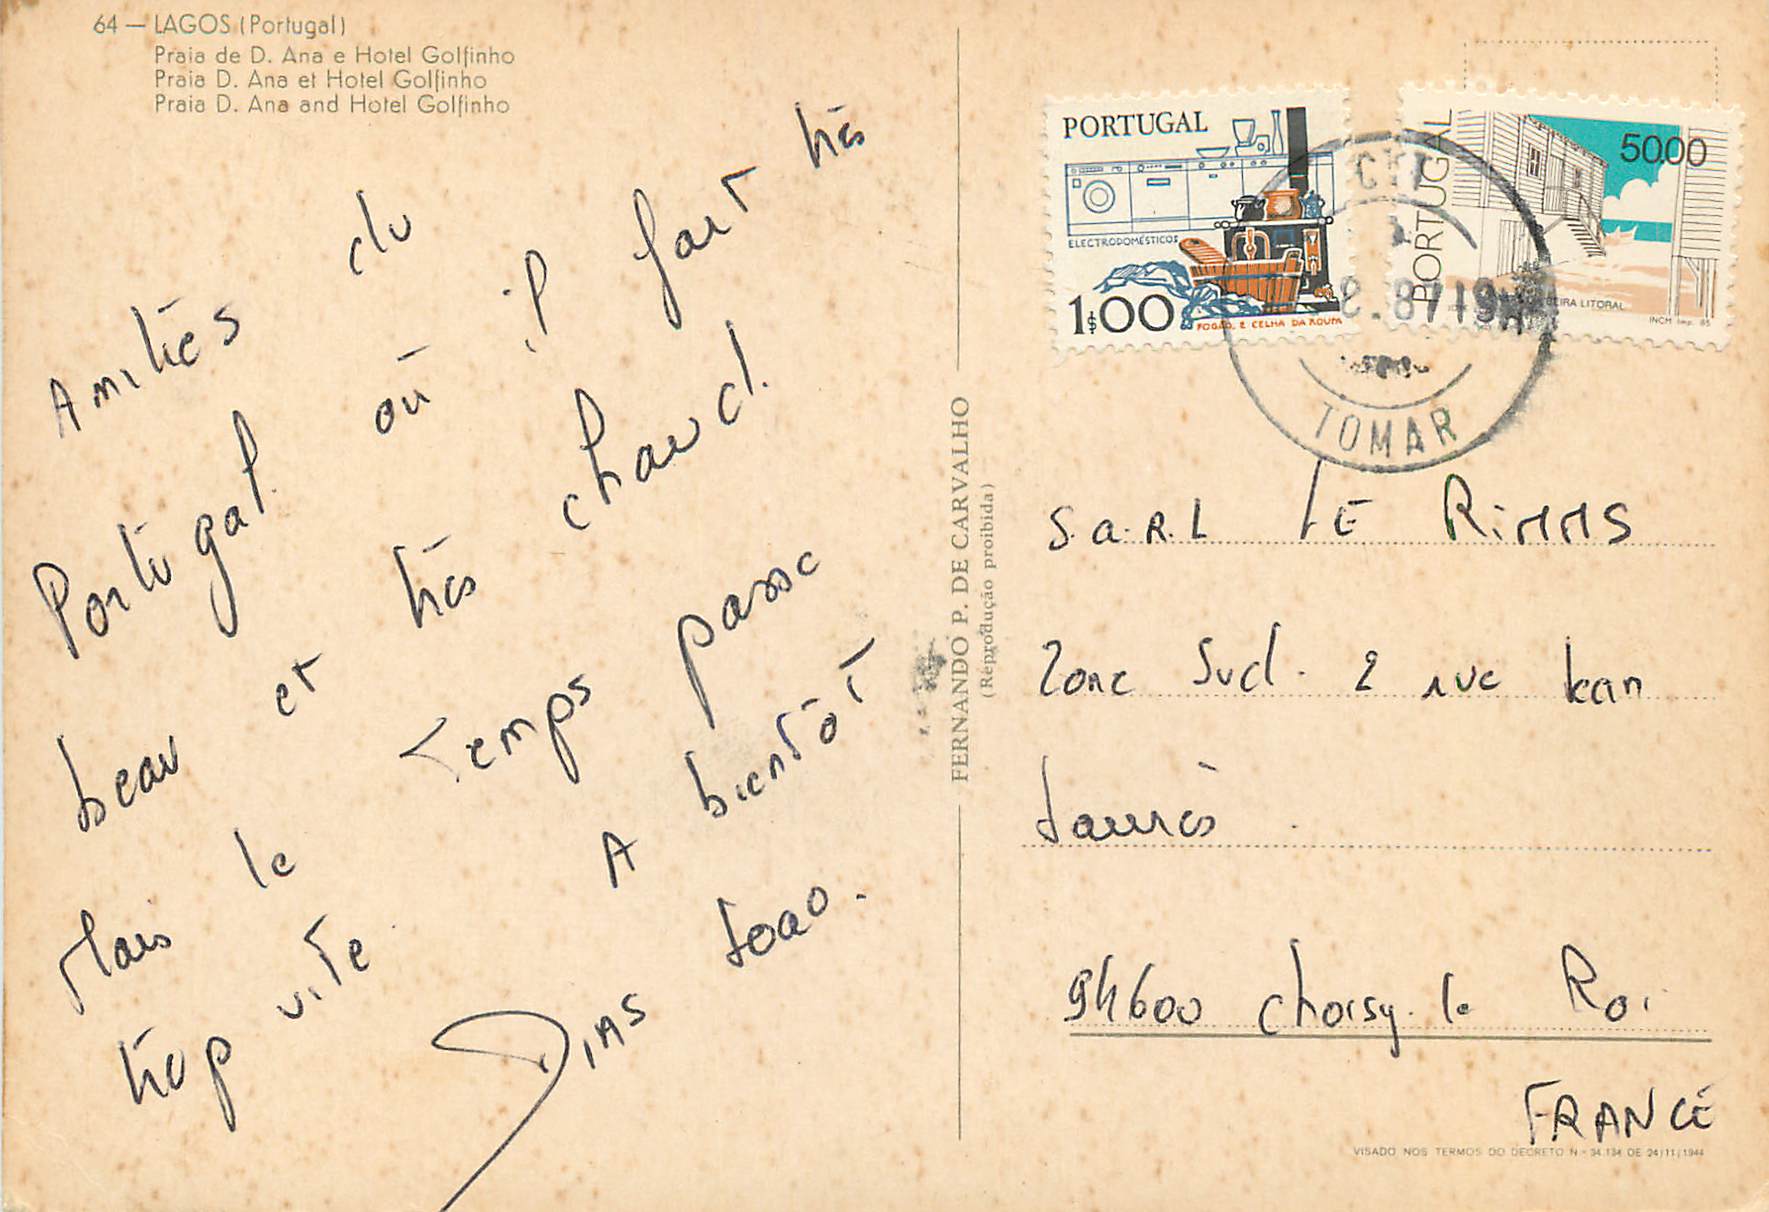 64 — LAGOS (Portugal)
Praia de D. Ana e Hotel Golfinho
Praia D. Ana et Hotel Golfinho
Praia D. Ana and Hotel Golfinho
Amitiés du
Portugal où il fait très
beau et très chaud.
Mais le temps passe
trop vite. A bientôt
DIAS Joao.
FERNANDO P. DE CARVALHO
(Reprodução proibida)
PORTUGAL
ELECTRODOMÉSTICOS
1$00
FOGÃO E CELHA DA ROUPA
PORTUGAL
50.00
BEIRA LITORAL
INCM Imp. 85
TOMAR
S.a.R.L LE RiMMS
Zone Sud. 2 rue Jean
Jaurès.
94600 Choisy. le Roi
FRANCE
VISADO NOS TERMOS DO DECRETO N.º 34.134 DE 24/11/1944